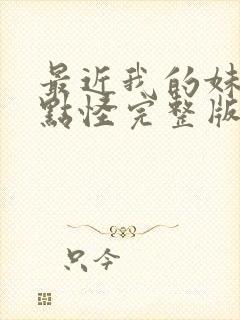 最近我的妹
點怪完整版
只今